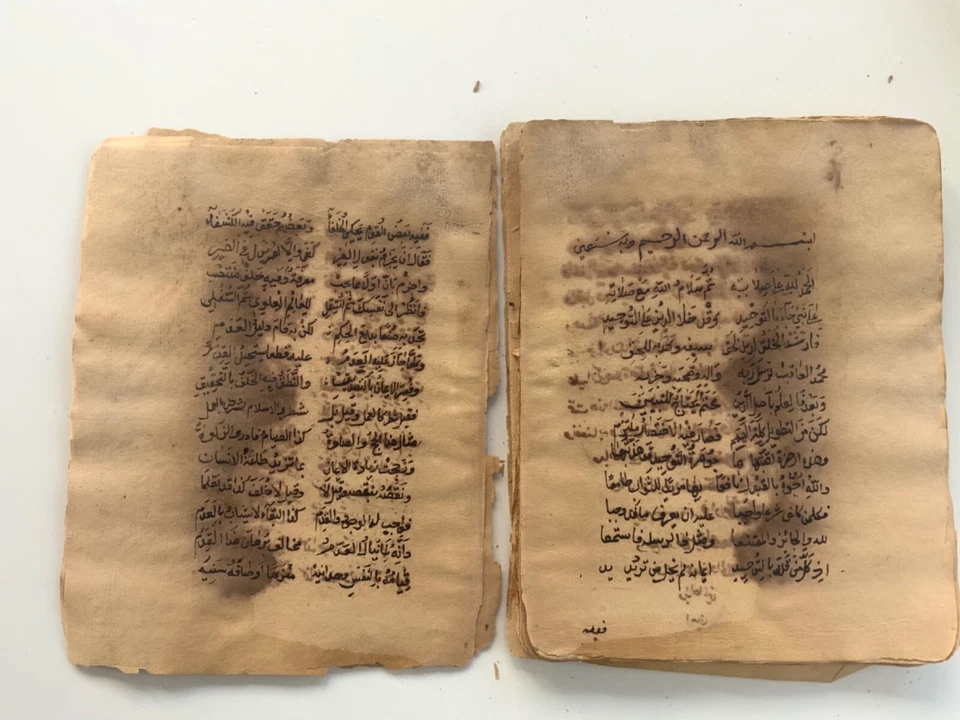 بسم الله الرحمن الرحيم وبه نستعين
الحمد لله على صلاته ثم سلام الله مع صلاته
على نبي جاء بالتوحيد وقد خلا الدين عن التوحيد
فارشد الخلق لدين الحق بسيفه وهديه للحق
محمد العاقب لرسل ربه وآله وصحبه وحزبه
وبعد فالعلم باصل الدين محتم يحتاج للتبيين
لكن من التطويل كلت الهمم فصار فيه الاختصار ملتزم
وهذه ارجوزة لقبتها جوهرة التوحيد قد هذبتها
والله ارجو في القبول نافعا بها مريدا للثواب طامعا
فكل من كلف شرعا وجبا عليه ان يعرف ما قد وجبا
لله والجائز والممتنعا ومثل ذا لرسله فاستمعا
اذ كل من قلد في التوحيد ايمانه لم يخل من ترديد
ففيه
ففيه بعض القوم يحكي الخلفا وبعضهم حقق فيه الكشفا
فقال ان يجزم بقول الغير كفى والا لم يزل في الضير
واجزم بان اولا مما يجب معرفة وفيه خلف منتصب
فانظر الى نفسك ثم انتقل للعالم العلوي ثم السفلي
تجد به صنعا بديع الحكم لكن به قام دليل العدم
وكل ما جاز عليه العدم عليه قطعا يستحيل القدم
وفسر الايمان بالتصديق والنطق فيه الخلف بالتحقيق
فقيل شرط كالعمل وقيل بل شطر والاسلام اشرحن بالعمل
مثال هذا الحج والصلوة كذا الصيام فادر والزكوة
ورجحت زيادة الايمان بما تزيد طاعة الانسان
ونقصه بنقصها وقيل لا وقيل لا خلف كذا قد نقلا
فواجب له الوجود والقدم كذا البقاء لا يشاب بالعدم
وانه لما ينال العدم مخالف برهان هذا القدم
قيامه بالنفس وحدانيه منزها اوصافه سنيه